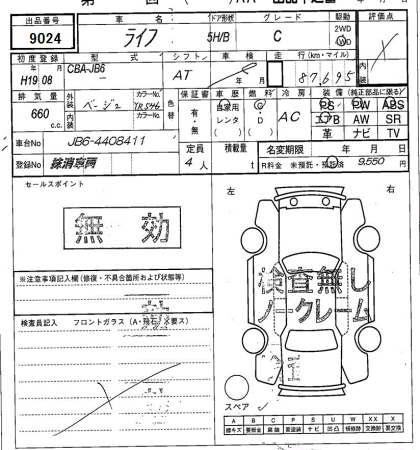 出品番号 車名 ドア形状 グレード 駆動 評価点
9024 ライフ 5H/B C 2WD
初度登録 型式 シフト 車検 走行(km・マイル)
年 月 CBA-JB6 AT 年 月 87,695 内装
H19 08
排気量 外装 ベージュ カラーNo. YR546 色替 保証書 車歴 燃料 冷房 装備(純正部品に限る)
660 c.c. 内装 カラーNo. 有・無 自家用 レンタ G・D AC PS PW ABS
エアB AW SR
革 ナビ TV
車台No JB6-4408411 定員 積載量 名変期限 年 月 日
登録No 抹消車両 4人 t R料金 未預託・預託済 9,550円
セールスポイント 左 右
無効
※注意事項記入欄(修復・不具合箇所および状態等)
検査無し
ノークレーム
検査員記入 フロントガラス(A・飛石・X要ス)
スペア
A B C P S U W XX X
線キズ 要板金 腐蝕 要塗装 サビ 凹凸 補修跡 交換跡 要交換